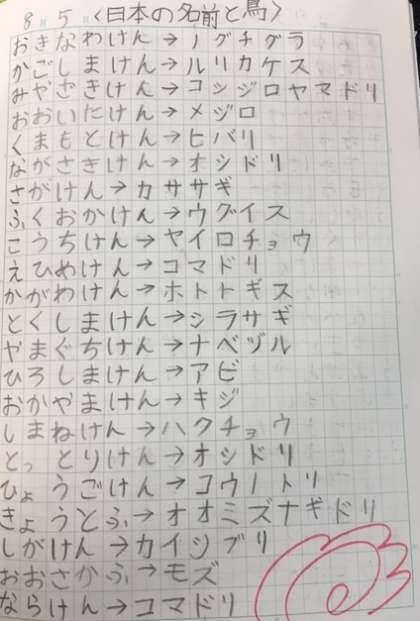 8月5日〈日本の名前と鳥〉
おきなわけん→ノグチゲラ
かごしまけん→ルリカケス
みやざきけん→コシジロヤマドリ
おおいたけん→メジロ
くまもとけん→ヒバリ
ながさきけん→オシドリ
さがけん→カササギ
ふくおかけん→ウグイス
こうちけん→ヤイロチョウ
えひめけん→コマドリ
かがわけん→ホトトギス
とくしまけん→シラサギ
やまぐちけん→ナベヅル
ひろしまけん→アビ
おかやまけん→キジ
しまねけん→ハクチョウ
とっとりけん→オシドリ
ひょうごけん→コウノトリ
きょうとふ→オオミズナギドリ
しがけん→カイツブリ
おおさかふ→モズ
ならけん→コマドリ